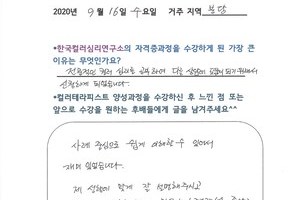 2020년 9월 16일 수요일 거주 지역 분당
•한국컬러심리연구소의 자격증과정을 수강하게 된 가장 큰
이유는 무엇인가요?
전문적인 컬러 심리를 공부하여 다른 상담에 접목하기 위해서
신청하게 되었습니다.
•컬러테라피스트 양성과정을 수강하신 후 느낀 점 또는
앞으로 수강을 원하는 후배들에게 글을 남겨주세요^^
사례 중심으로 쉽게 이해할 수 있어서
재미 있었습니다.
제 상황에 맞게 잘 설명해주시고